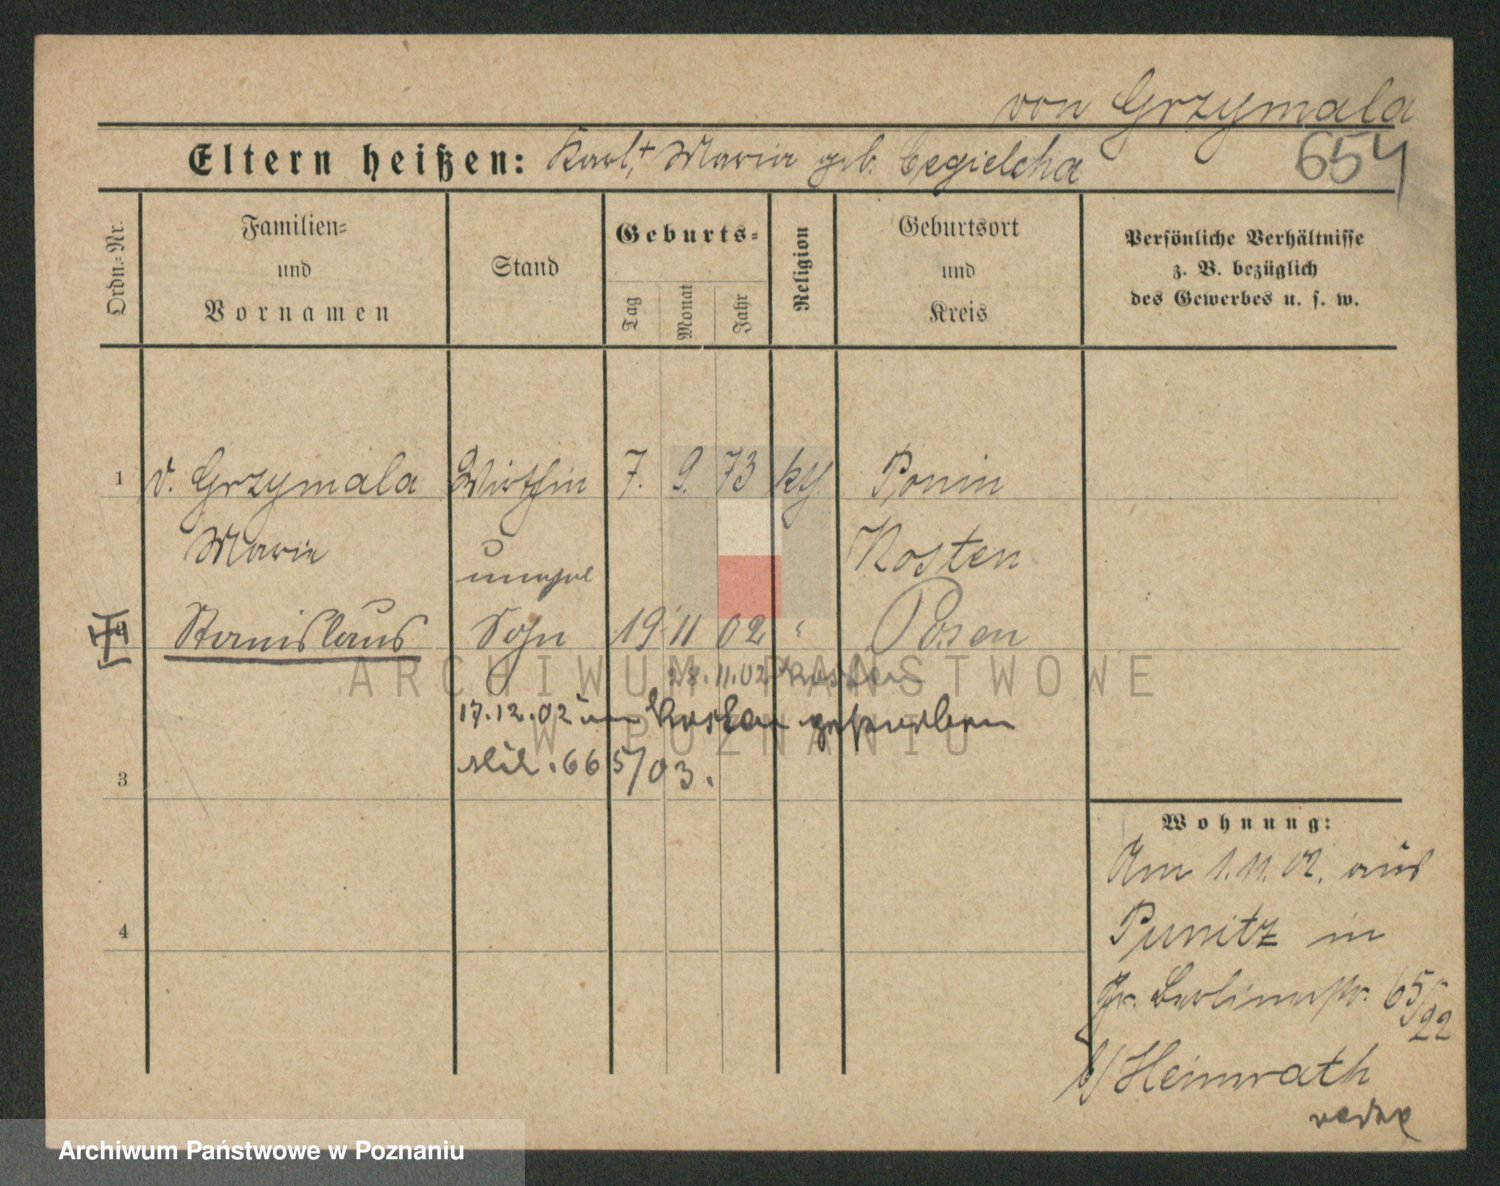 von Grzymala
Eltern heißen: Karl †, Maria geb. Cegielcha
654
Ordn.-Nr.
Familien-
und
Vornamen
Stand
Geburts-
Tag
Monat
Jahr
Religion
Geburtsort
und
Kreis
Persönliche Verhältnisse
z. B. bezüglich
des Gewerbes u. s. w.
1 v. Grzymala Wirthin 7. 9. 73 kg. Ponin
Maria Kosten
unehel
Stanislaus Sohn 19. 11 02 " Posen
28.11.02 Kosten
17.12.02 in Kosten gestorben
665/03.
3
4
Wohnung:
Am 1.11.02. aus
Punitz in
Gr. Berlinerstr. 65/22
b/Heimrath
ARCHIWUM PAŃSTWOWE
W POZNANIU
Archiwum Państwowe w Poznaniu